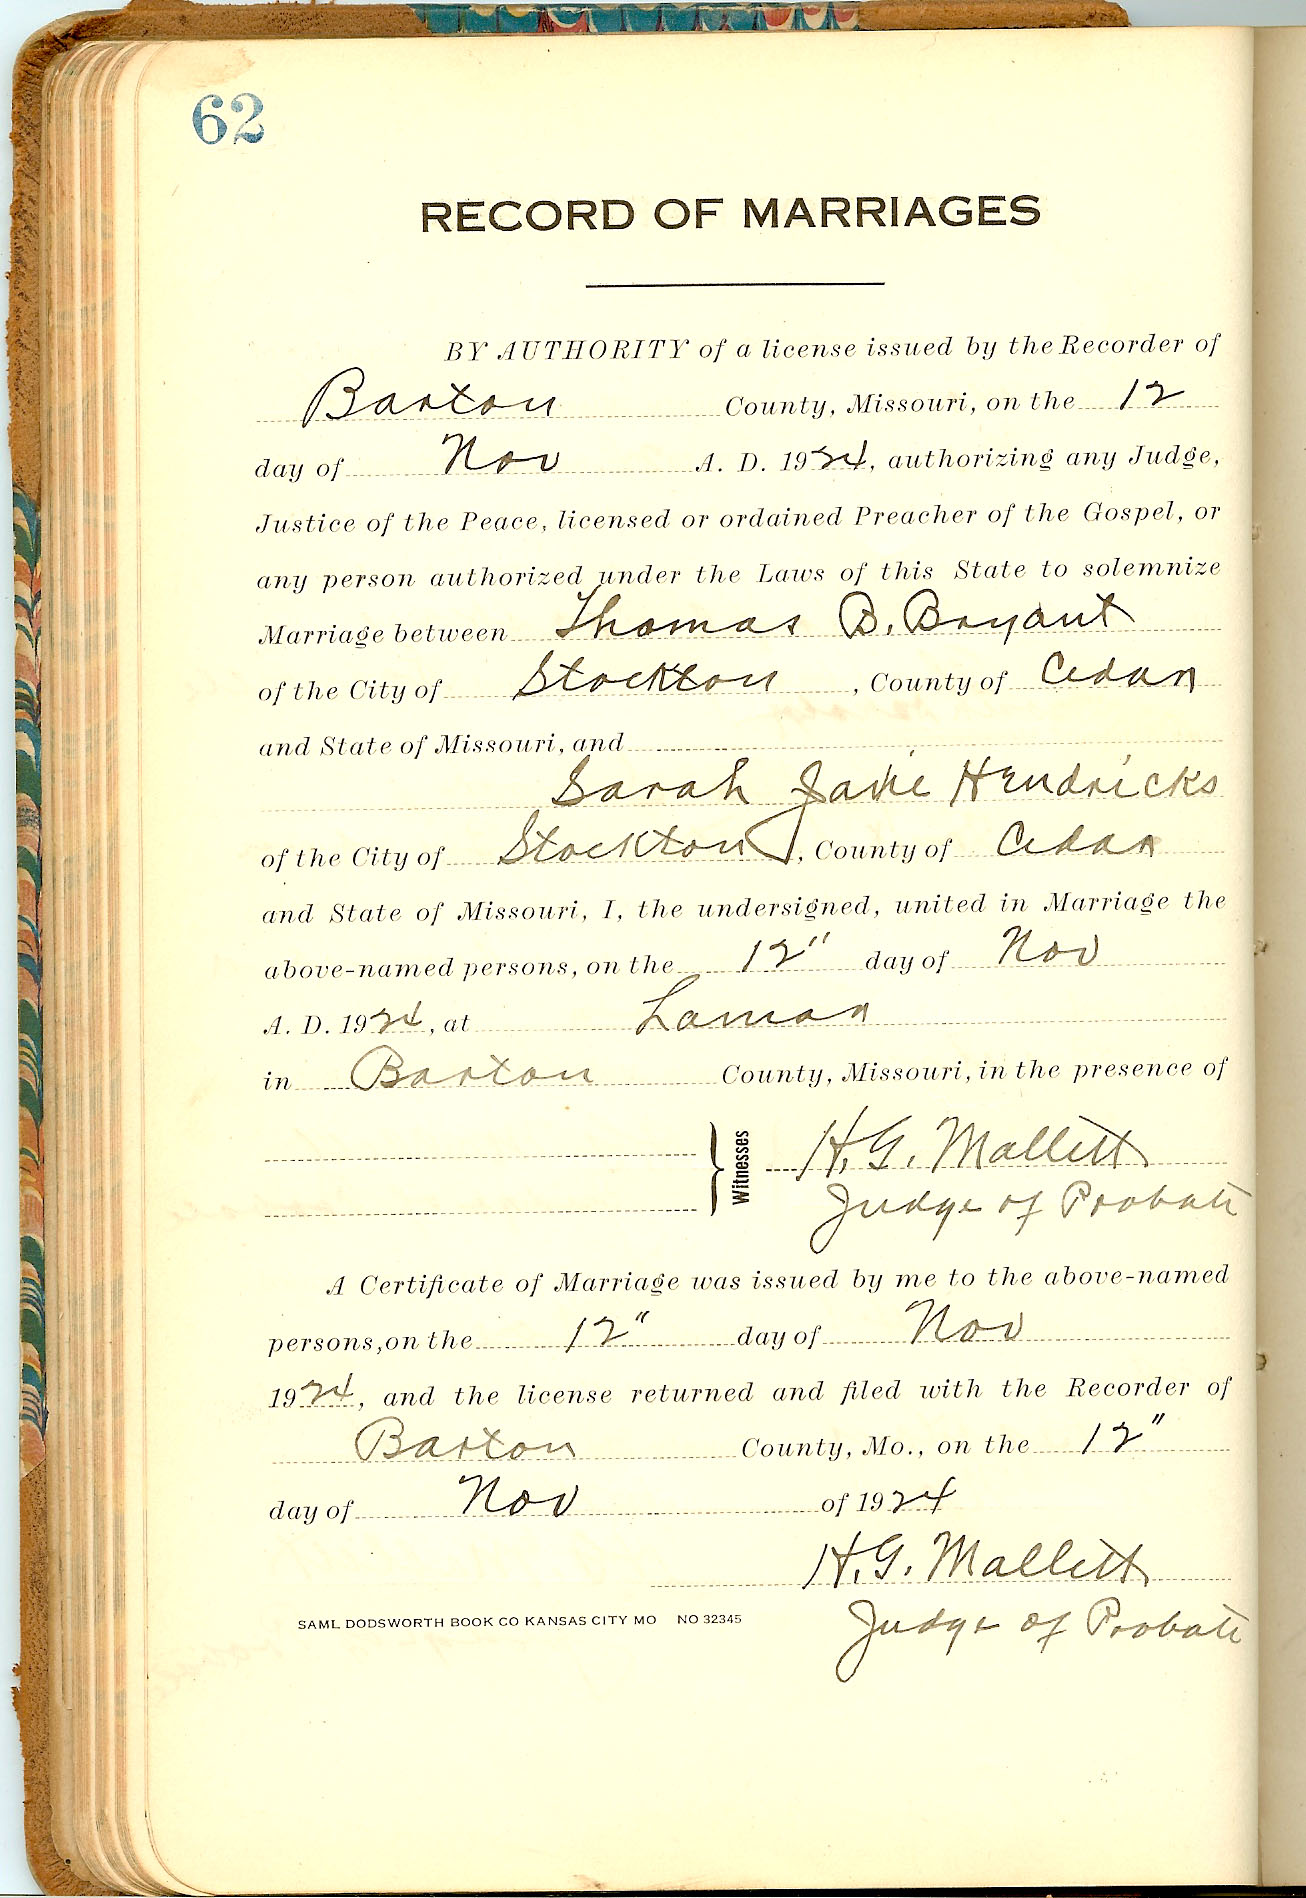 62
RECORD OF MARRIAGES
BY AUTHORITY of a license issued by the Recorder of
Barton County, Missouri, on the 12
day of Nov A. D. 1924, authorizing any Judge,
Justice of the Peace, licensed or ordained Preacher of the Gospel, or
any person authorized under the Laws of this State to solemnize
Marriage between Thomas B. Bryant
of the City of Stockton, County of Cedar
and State of Missouri, and
Sarah Jane Hendricks
of the City of Stockton, County of Cedar
and State of Missouri, I, the undersigned, united in Marriage the
above-named persons, on the 12" day of Nov
A. D. 1924, at Lamar
in Barton County, Missouri, in the presence of
Witnesses H. G. Mallett
Judge of Probate
A Certificate of Marriage was issued by me to the above-named
persons, on the 12" day of Nov
1924, and the license returned and filed with the Recorder of
Barton County, Mo., on the 12"
day of Nov of 1924
H. G. Mallett
SAML DODSWORTH BOOK CO KANSAS CITY MO NO 32345
Judge of Probate